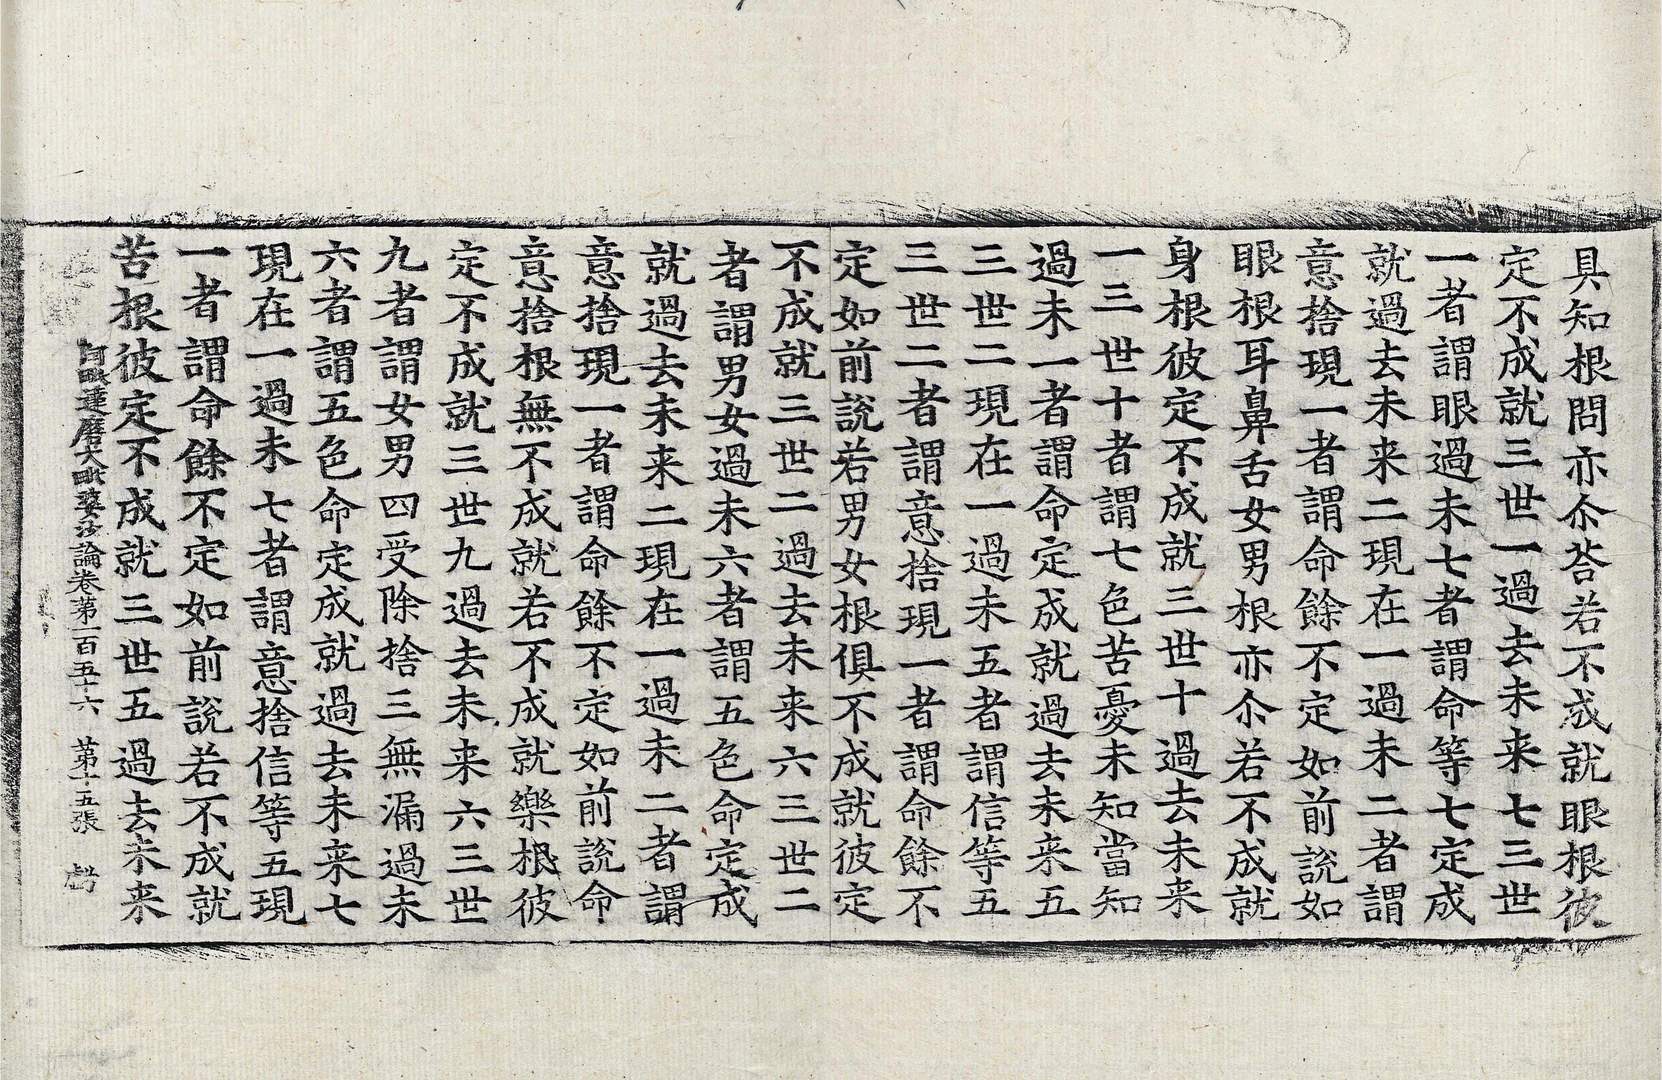 具知根問亦尒荅若不成就眼根彼
定不成就三世一過去未来七三世
一者謂眼過未七者謂命等七定成
就過去未来二現在一過未二者謂
意捨現一者謂命餘不定如前說如
眼根耳鼻舌女男根亦尒若不成就
身根彼定不成就三世十過去未来
一三世十者謂七色苦憂未知當知
過未一者謂命定成就過去未来五
三世二現在一過未五者謂信等五
三世二者謂意捨現一者謂命餘不
定如前說若男女根俱不成就彼定
不成就三世二過去未来六三世二
者謂男女過未六者謂五色命定成
就過去未来二現在一過未二者謂
意捨現一者謂命餘不定如前說命
意捨根無不成就若不成就樂根彼
定不成就三世九過去未来六三世
九者謂女男四受除捨三無漏過未
六者謂五色命定成就過去未来七
現在一過未七者謂意捨信等五現
一者謂命餘不定如前說若不成就
苦根彼定不成就三世五過去未来
阿毗達磨大毗婆沙論卷第一百五十六 第十五張